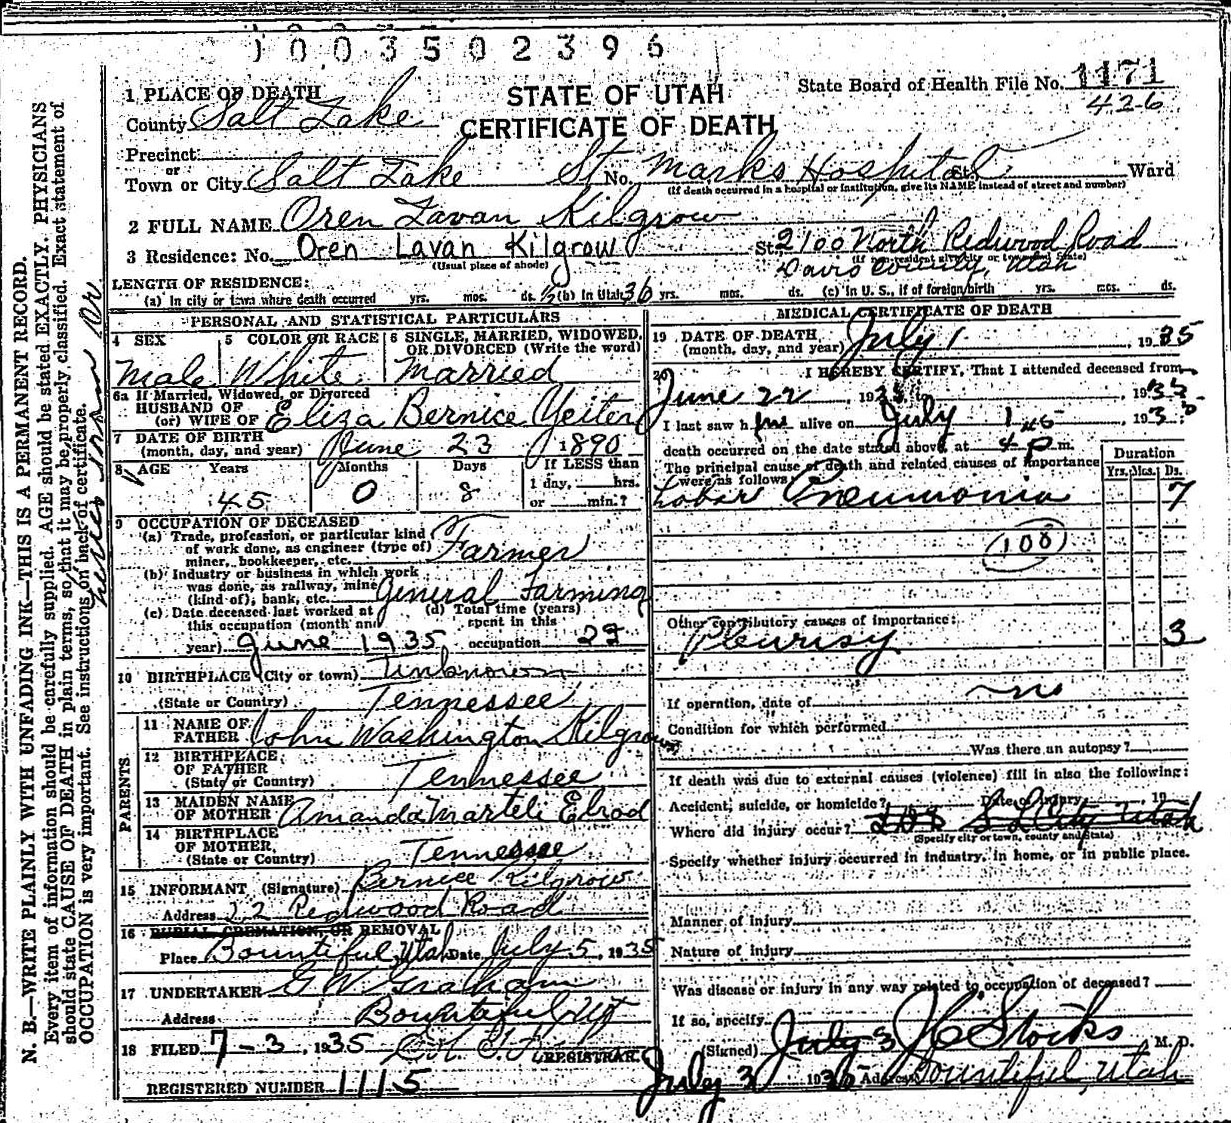 1003502396
1 PLACE OF DEATH
STATE OF UTAH
CERTIFICATE OF DEATH
State Board of Health File No. 1171
426
County Salt Lake
Precinct
or
Town or City Salt Lake No. St Marks Hospital St. Ward
(If death occurred in a hospital or institution, give its NAME instead of street and number)
2 FULL NAME Oren Lavan Kilgrow
3 Residence: No. Oren Lavan Kilgrow St. 2100 North Redwood Road
(Usual place of abode) (If non-resident give city or town and State)
Davis County, Utah
LENGTH OF RESIDENCE:
(a) In city or town where death occurred yrs. mos. ds. (b) In Utah 36 yrs. mos. ds. (c) In U. S., if of foreign birth yrs. mos. ds.
PERSONAL AND STATISTICAL PARTICULARS
4 SEX Male
5 COLOR OR RACE White
6 SINGLE, MARRIED, WIDOWED, OR DIVORCED (Write the word) Married
6a If Married, Widowed, or Divorced
HUSBAND OF
(or) WIFE OF Eliza Bernice Yeiter
7 DATE OF BIRTH
(month, day, and year) June 23 1890
8 AGE Years 45 Months 0 Days 8 If LESS than
1 day, hrs.
or min.?
9 OCCUPATION OF DECEASED
(a) Trade, profession, or particular kind
of work done, as engineer (type of)
miner, bookkeeper, etc. Farmer
(b) Industry or business in which work
was done, as railway, mine
(kind of), bank, etc. General Farming
(c) Date deceased last worked at
this occupation (month and
year) June 1935
(d) Total time (years)
spent in this
occupation
10 BIRTHPLACE (City or town) Unknown
(State or Country) Tennessee
PARENTS
11 NAME OF
FATHER John Washington Kilgrow
12 BIRTHPLACE
OF FATHER
(State or Country) Tennessee
13 MAIDEN NAME
OF MOTHER Amanda Marteli Elrod
14 BIRTHPLACE
OF MOTHER
(State or Country) Tennessee
15 INFORMANT (Signature) Bernice Kilgrow
Address Redwood Road
16 BURIAL, CREMATION, OR REMOVAL
Place Bountiful, Utah Date July 5, 1935
17 UNDERTAKER G W Graham
Address Bountiful Ut
18 FILED 7-3, 1935 REGISTRAR
REGISTERED NUMBER 1115
MEDICAL CERTIFICATE OF DEATH
19 DATE OF DEATH
(month, day, and year) July 1, 1935
20 I HEREBY CERTIFY, That I attended deceased from
June 22, 1935, to 1935
I last saw him alive on July 1, 193
death occurred on the date stated above, at p m.
The principal cause of death and related causes of importance
were as follows:
Duration
Yrs. Mos. Ds.
Lobar Pneumonia 7
108
Other contributory causes of importance:
Pleurisy 3
If operation, date of no
Condition for which performed
Was there an autopsy?
If death was due to external causes (violence) fill in also the following:
Accident, suicide, or homicide? Date of injury 19
Where did injury occur? S L City Utah
(Specify city or town, county and State)
Specify whether injury occurred in industry, in home, or in public place.
Manner of injury
Nature of injury
Was disease or injury in any way related to occupation of deceased?
If so, specify
(Signed) July 3 J C Stocks M. D.
July 3 1935 Address Bountiful, Utah
N. B.—WRITE PLAINLY WITH UNFADING INK—THIS IS A PERMANENT RECORD.
Every item of information should be carefully supplied. AGE should be stated EXACTLY. PHYSICIANS
should state CAUSE OF DEATH in plain terms, so that it may be properly classified. Exact statement of
OCCUPATION is very important. See instructions on back of certificate.